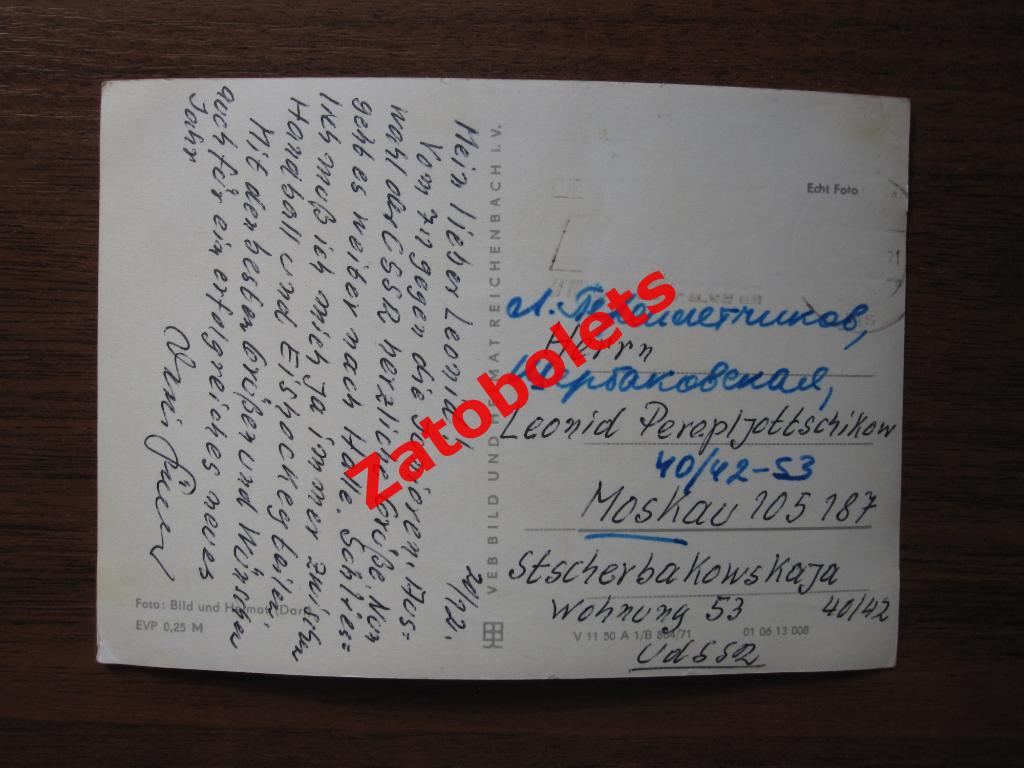 20/12.
Mein lieber Leonid!
Vom 7:7 gegen die Junioren-Aus-
wahl der CSSR herzliche Grüße. Nun
geht es weiter nach Halle. Schlies-
lich muß ich mich ja immer zwischen
Handball und Eishockey teilen.
Mit den besten Grüßen und Wünschen
auch für ein erfolgreiches neues
Jahr
Foto: Bild und Heimat (Dar
EVP 0,25 M
VEB BILD UND HEIMAT REICHENBACH I. V.
Echt Foto
21
Л. Переплетчиков,
Herrn
Щербаковская,
Leonid Perepljottschikow
40/42-53
Moskau 105 187
Stscherbakowskaja
Wohnung 53 40/42
V 11 50 A 1/B 884/71 01 06 13 008
UdSSR
Zatobolets